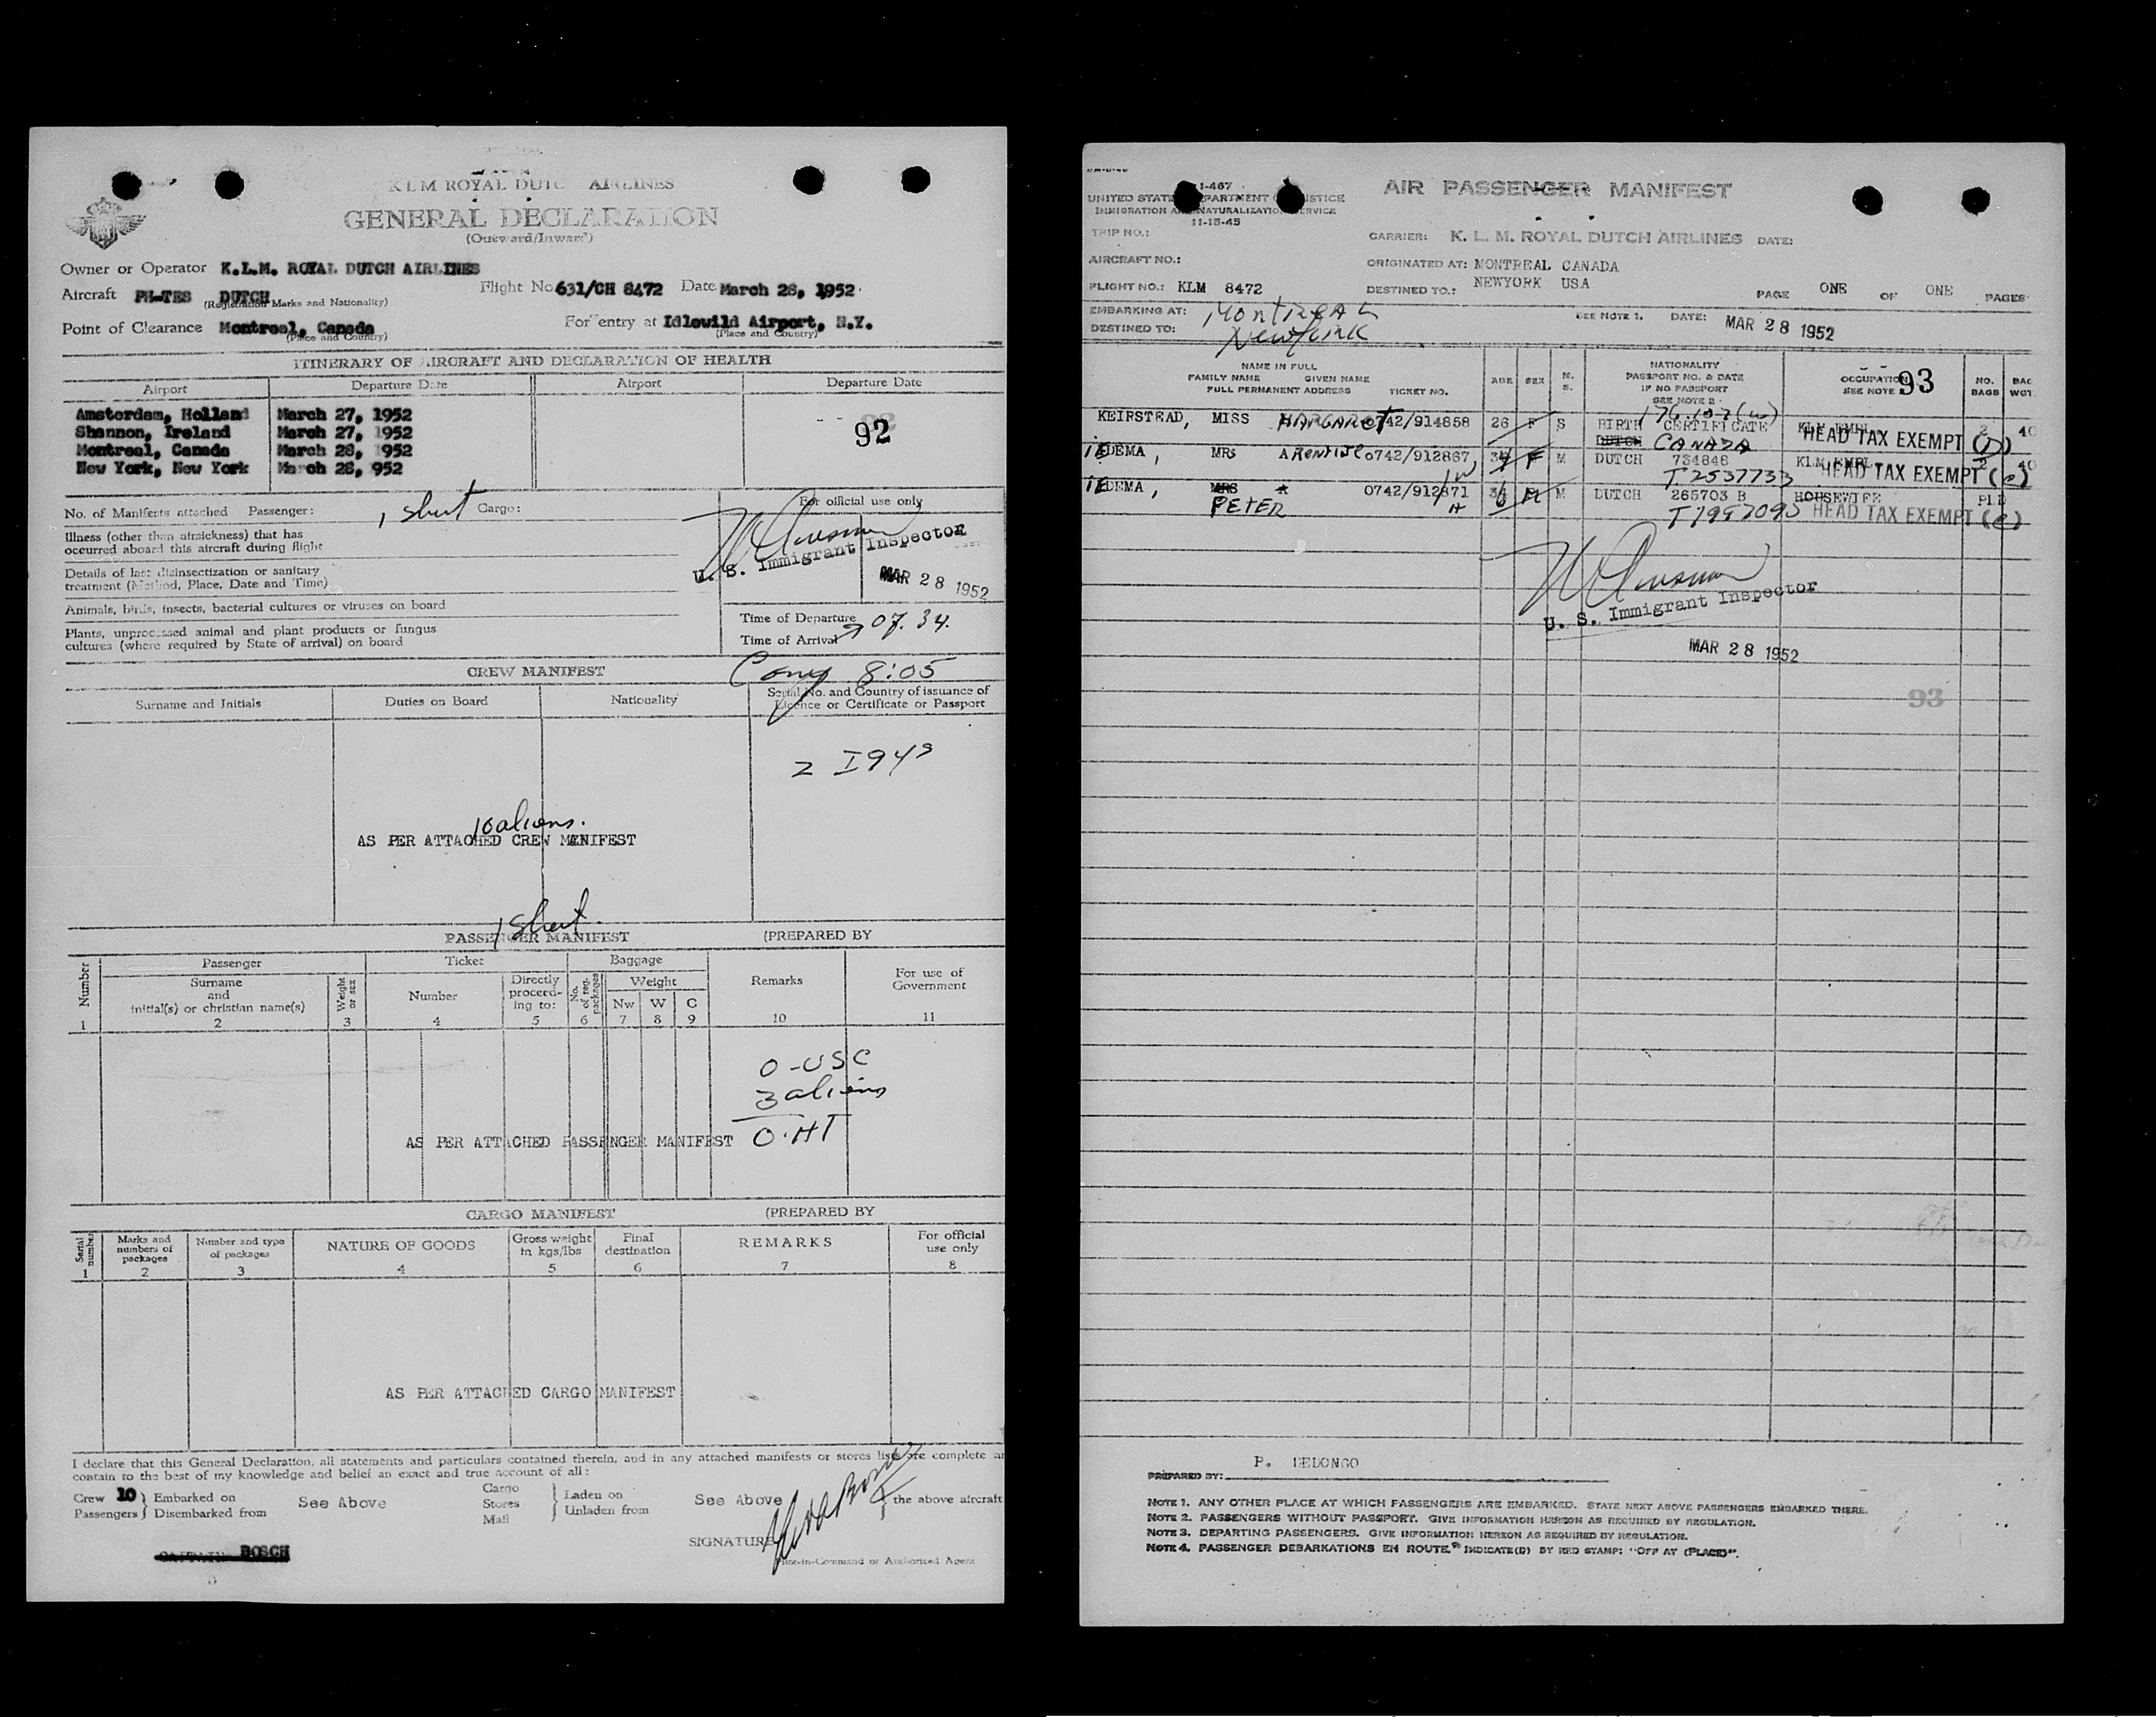 KLM ROYAL DUTC AIRLINES
GENERAL DECLARATION
(Outward/Inward)
Owner or Operator K.L.M. ROYAL DUTCH AIRLINES
Aircraft PH-TES DUTCH Flight No 631/CH 8472 Date March 28, 1952.
(Registration Marks and Nationality)
Point of Clearance Montreal, Canada For entry at Idlewild Airport, N.Y.
(Place and Country) (Place and Country)
ITINERARY OF AIRCRAFT AND DECLARATION OF HEALTH
Airport Departure Date Airport Departure Date
Amsterdam, Holland March 27, 1952
Shannon, Ireland March 27, 1952
Montreal, Canada March 28, 1952
New York, New York March 28, 952
92
No. of Manifests attached Passenger: 1 sheet Cargo:
For official use only
Illness (other than airsickness) that has
occurred aboard this aircraft during flight
U. S. Immigrant Inspector
Details of last disinsectization or sanitary
treatment (Method, Place, Date and Time)
MAR 28 1952
Animals, birds, insects, bacterial cultures or viruses on board
Plants, unprocessed animal and plant products or fungus
cultures (where required by State of arrival) on board
Time of Departure
Time of Arrival 07.34.
8:05
CREW MANIFEST
Surname and Initials Duties on Board Nationality Serial No. and Country of issuance of
Licence or Certificate or Passport
2 I94s
10 aliens.
AS PER ATTACHED CREW MANIFEST
1 sheet.
PASSENGER MANIFEST (PREPARED BY
Number Passenger Ticket Baggage Remarks For use of
Government
Surname
and
initial(s) or christian name(s)
Weight or sex
Number
Directly
proceed-
ing to:
No. of reg. packages
Weight
Nw W C
1 2 3 4 5 6 7 8 9 10 11
0 - USC
3 aliens
0. HT
AS PER ATTACHED PASSENGER MANIFEST
CARGO MANIFEST (PREPARED BY
Serial number
Marks and
numbers of
packages
Number and type
of packages
NATURE OF GOODS
Gross weight
in kgs/lbs
Final
destination
REMARKS
For official
use only
1 2 3 4 5 6 7 8
AS PER ATTACHED CARGO MANIFEST
I declare that this General Declaration, all statements and particulars contained therein, and in any attached manifests or stores lists are complete an
contain to the best of my knowledge and belief an exact and true account of all:
Crew 10 Embarked on
Passengers Disembarked from
See Above
Cargo
Stores
Mail
Laden on
Unladen from
See Above
the above aircraft
SIGNATURE
Pilot-in-Command or Authorised Agent
CAPTAIN BOSCH
I-467
UNITED STATES DEPARTMENT OF JUSTICE
IMMIGRATION AND NATURALIZATION SERVICE
11-15-45
AIR PASSENGER MANIFEST
TRIP NO.:
CARRIER: K. L. M. ROYAL DUTCH AIRLINES DATE:
AIRCRAFT NO.:
ORIGINATED AT: MONTREAL CANADA
FLIGHT NO.: KLM 8472
DESTINED TO.: NEWYORK USA
PAGE ONE OF ONE PAGES
EMBARKING AT: Montreal
SEE NOTE 1. DATE: MAR 28 1952
DESTINED TO: New York
NAME IN FULL
FAMILY NAME GIVEN NAME
FULL PERMANENT ADDRESS TICKET NO.
AGE SEX M.
S.
NATIONALITY
PASSPORT NO. & DATE
IF NO PASSPORT
SEE NOTE 2
OCCUPATION
SEE NOTE
93
NO.
BAGS
BAG
WGT
KEIRSTEAD, MISS MARGARET 0742/914858 26 F S BIRTH CERTIFICATE KLM EMPL. 2 40
DUTCH CANADA
HEAD TAX EXEMPT
IEDEMA, MRS 0742/912867 F M DUTCH 734848 KLM EMPL. 2 40
T 2537733
HEAD TAX EXEMPT (e)
IEDEMA, MRS A 0742/912871 M M DUTCH 265703 B HOUSEWIFE PLD
PETER
HEAD TAX EXEMPT (e)
U. S. Immigrant Inspector
MAR 28 1952
93
P. DELONGO
PREPARED BY:
NOTE 1. ANY OTHER PLACE AT WHICH PASSENGERS ARE EMBARKED. STATE NEXT ABOVE PASSENGERS EMBARKED THERE.
NOTE 2. PASSENGERS WITHOUT PASSPORT. GIVE INFORMATION HEREON AS REQUIRED BY REGULATION.
NOTE 3. DEPARTING PASSENGERS. GIVE INFORMATION HEREON AS REQUIRED BY REGULATION.
NOTE 4. PASSENGER DEBARKATIONS EN ROUTE, INDICATE(D) BY RED STAMP: "OFF AT (PLACE)".